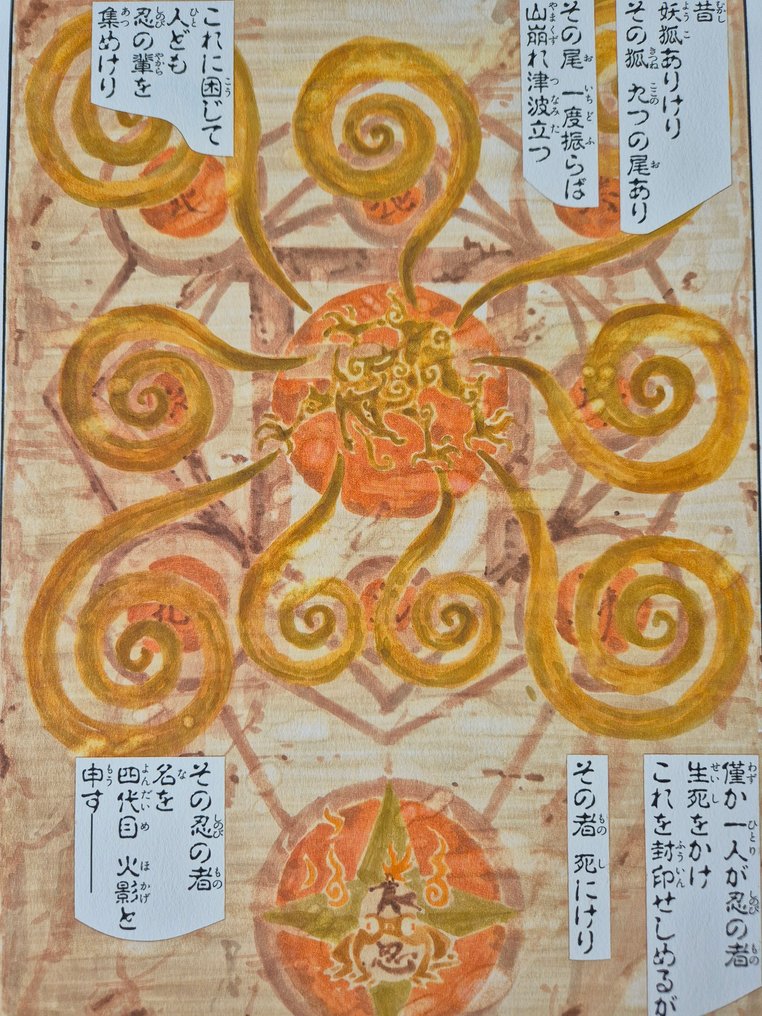 昔
妖狐ありけり
その狐 九つの尾あり
その尾 一度振らば
山崩れ津波立つ
これに困じて
人ども
忍の輩を
集めけり
僅か一人が忍の者
生死をかけ
これを封印せしめるが
その者 死にけり
その忍の者
名を
四代目 火影と
申す──
忍